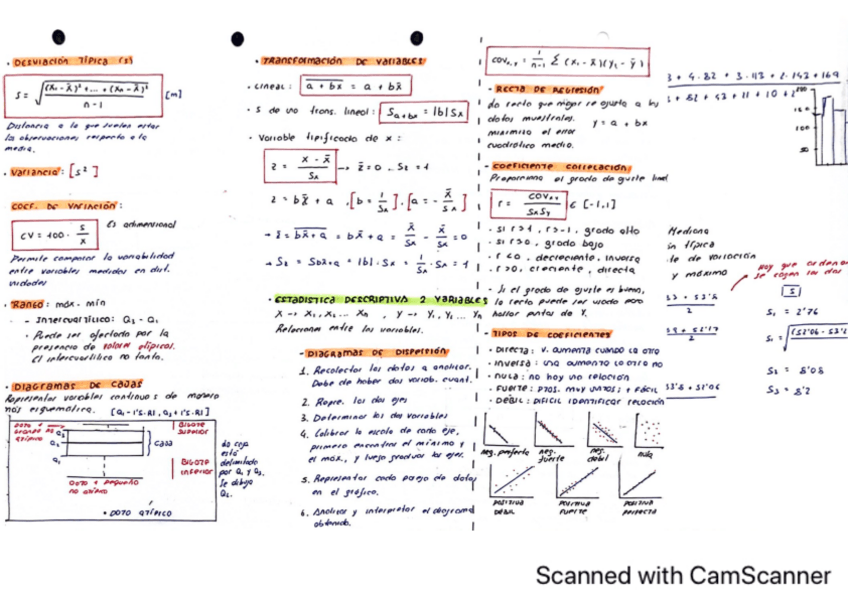 · DESVIACIÓN TÍPICA (s)
S = √((X₁ - X̄)² + ... + (Xn - X̄)² / n - 1) [m]
Distancia a la que suelen estar
las observaciones respecto a la
media.
· VARIANCIA: [s²]
COEF. DE VARIACIÓN:
CV = 100 · s/x̄
Es adimensional
Permite comparar la variabilidad
entre variables medidas en dist.
unidades
· RANGO: máx - mín
- Intercuartílico: Q₃ - Q₁
· Puede ser afectado por la
presencia de valores atípicos.
El intercuartílico no tanto.
· DIAGRAMAS DE CAJAS
Representar variables continuas de manera
más esquemática. [Q₁ - 1'5·RI, Q₃ + 1'5·RI]
DATO +
grande no
atípico
BIGOTE
SUPERIOR
Q₃
Q₂
Q₁
CAJA
BIGOTE
INFERIOR
DATO + pequeño
no atípico
• DATO ATÍPICO
La caja
está
delimitada
por Q₁ y Q₃.
Se dibuja
Q₂.
· TRANSFORMACIÓN DE VARIABLES
· Lineal: a + bx = a + bx̄
· S de una trans. lineal: S a+bx = |b| Sx
· Variable tipificada de x:
z = x - x̄ / Sx → z̄ = 0 , Sz = 1
z = bx + a , [b = 1/Sx] , [a = - x̄/Sx]
→ z̄ = bx + a = bx̄ + a = x̄/Sx - x̄/Sx = 0
→ Sz = Sbx+a = |b| · Sx = 1/Sx · Sx = 1
· ESTADÍSTICA DESCRIPTIVA 2 VARIABLES
X → X₁, X₂ ... Xn , Y → Y₁, Y₂ ... Yn
Relaciones entre las variables.
- DIAGRAMAS DE DISPERSIÓN
1. Recolectar los datos a analizar.
Debe de haber dos variab. cuant.
2. Repre. los dos ejes
3. Determinar las dos variables
4. Calibrar la escala de cada eje,
primero encontrar el mínimo y
el máx., y luego graduar los ejes.
5. Representar cada pareja de datos
en el gráfico.
6. Analizar y interpretar el diagrama
obtenido.
COVx,y = 1/n-1 Σ (Xi - X̄)(Yi - Ȳ)
- RECTA DE REGRESIÓN
La recta que mejor se ajusta a los
datos muestrales.
y = a + bx
minimiza el error
cuadrático medio.
- COEFICIENTE CORRELACIÓN
Proporciona el grado de ajuste lineal
r = COVx,y / SxSy ∈ [-1,1]
· si r→1, r→-1, grado alto
· si r→0, grado bajo
· r<0, decreciente, inversa
· r>0, creciente, directa
· Si el grado de ajuste es bueno,
la recta puede ser usada para
hallar puntos de Y.
- TIPOS DE COEFICIENTES
· DIRECTA: V. aumenta cuando la otra
· INVERSA: una aumenta la otra no
· NULA: no hay una relación
· FUERTE: ptos. muy juntos, + fácil
· DÉBIL: DIFÍCIL IDENTIFICAR RELACIÓN
neg. perfecta
neg. fuerte
neg. debil
nula
POSITIVA DÉBIL
POSITIVA FUERTE
POSITIVA PERFECTA
3 + 4·82 + 3·113 + 2·143 + 169
200
150
100
50
Mediana
y máximo
S₁ = 2'76
S₂ = 8'08
S₃ = 8'2
Scanned with CamScanner